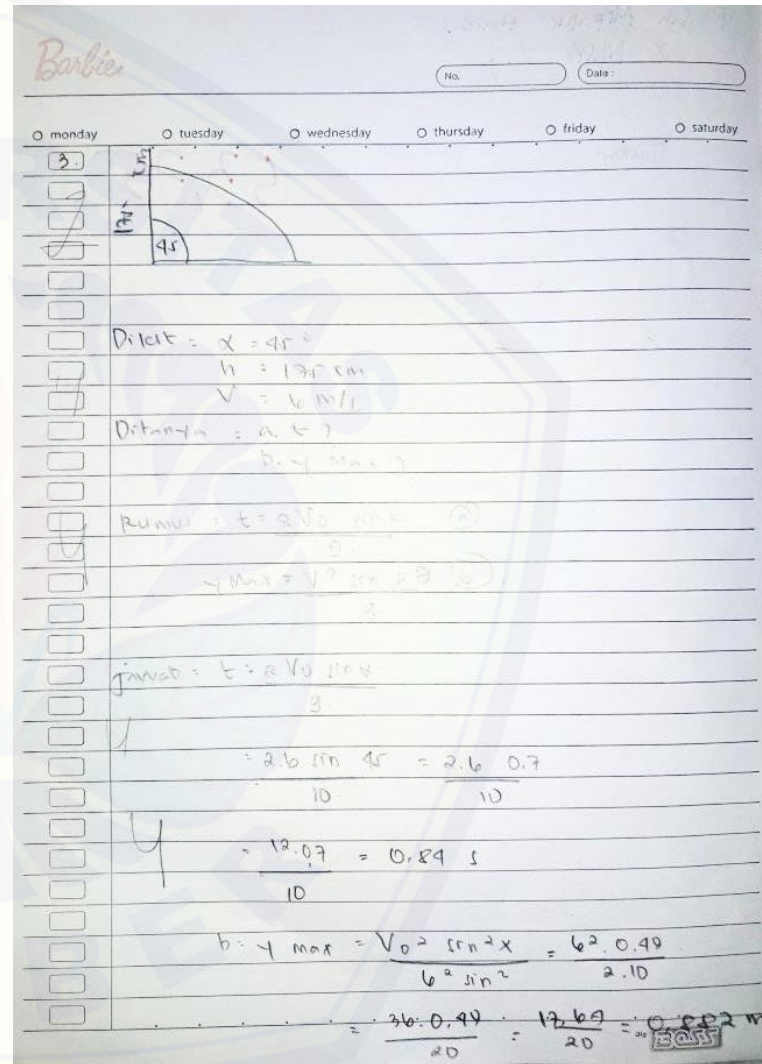 Barbie
No. Date :
monday tuesday wednesday thursday friday saturday
3.
45
Dikit = α = 45°
h = 175 cm
V = 6 m/s
Ditanya = a. t ?
b. y max ?
Rumus = t = 2 V0 sin α (a)
g
y Max = V0² sin 2θ (b)
g.
jawab = t = 2 V0 sin α
g
= 2.6 sin 45 = 2.6 0.7
10 10
= 12.07 = 0.84 s
10
b. y max = V0² sin²x = 6². 0.49
6² sin² 2.10
= 36. 0,49 = 17,64 = 0.882 m
20 20
Boss